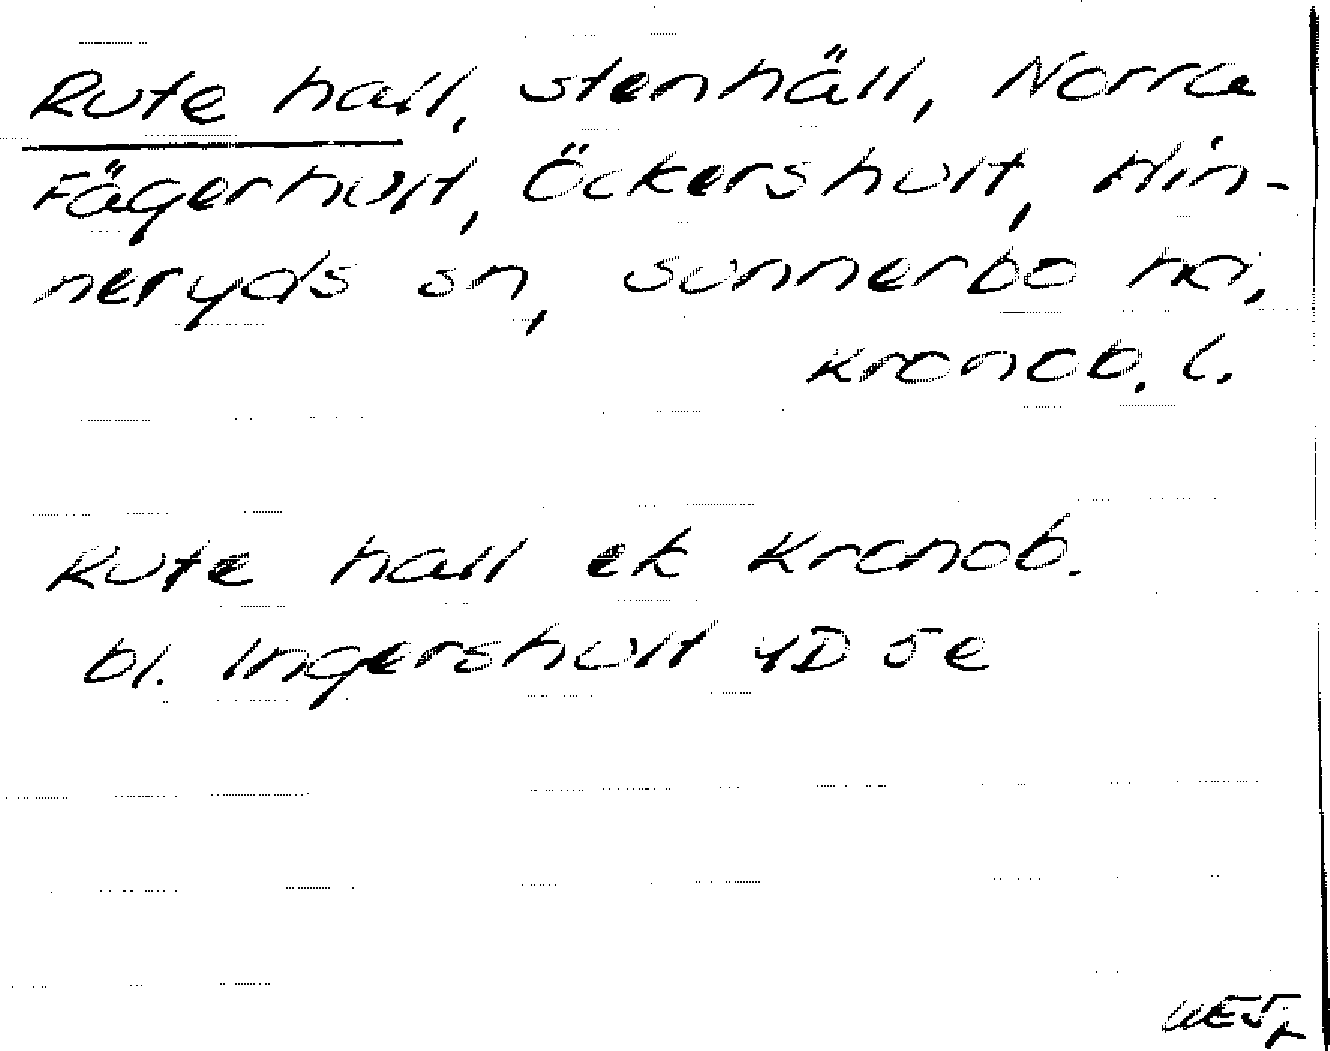 Rute hall, stenhäll, Norra
Fägerhult, Öckershult, Hin-
neryds sn, Sunnerbo hd,
Kronob. l.
Rute hall ek Kronob.
bl. Ingershult 4D 5e